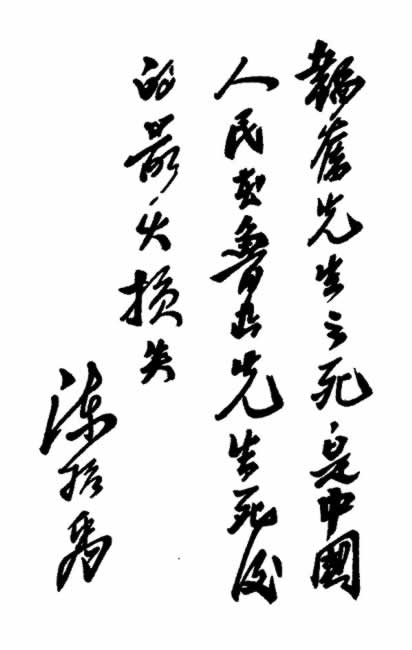 韜奮先生之死是中國
人民在魯迅先生死後
的最大損失
陳紹禹